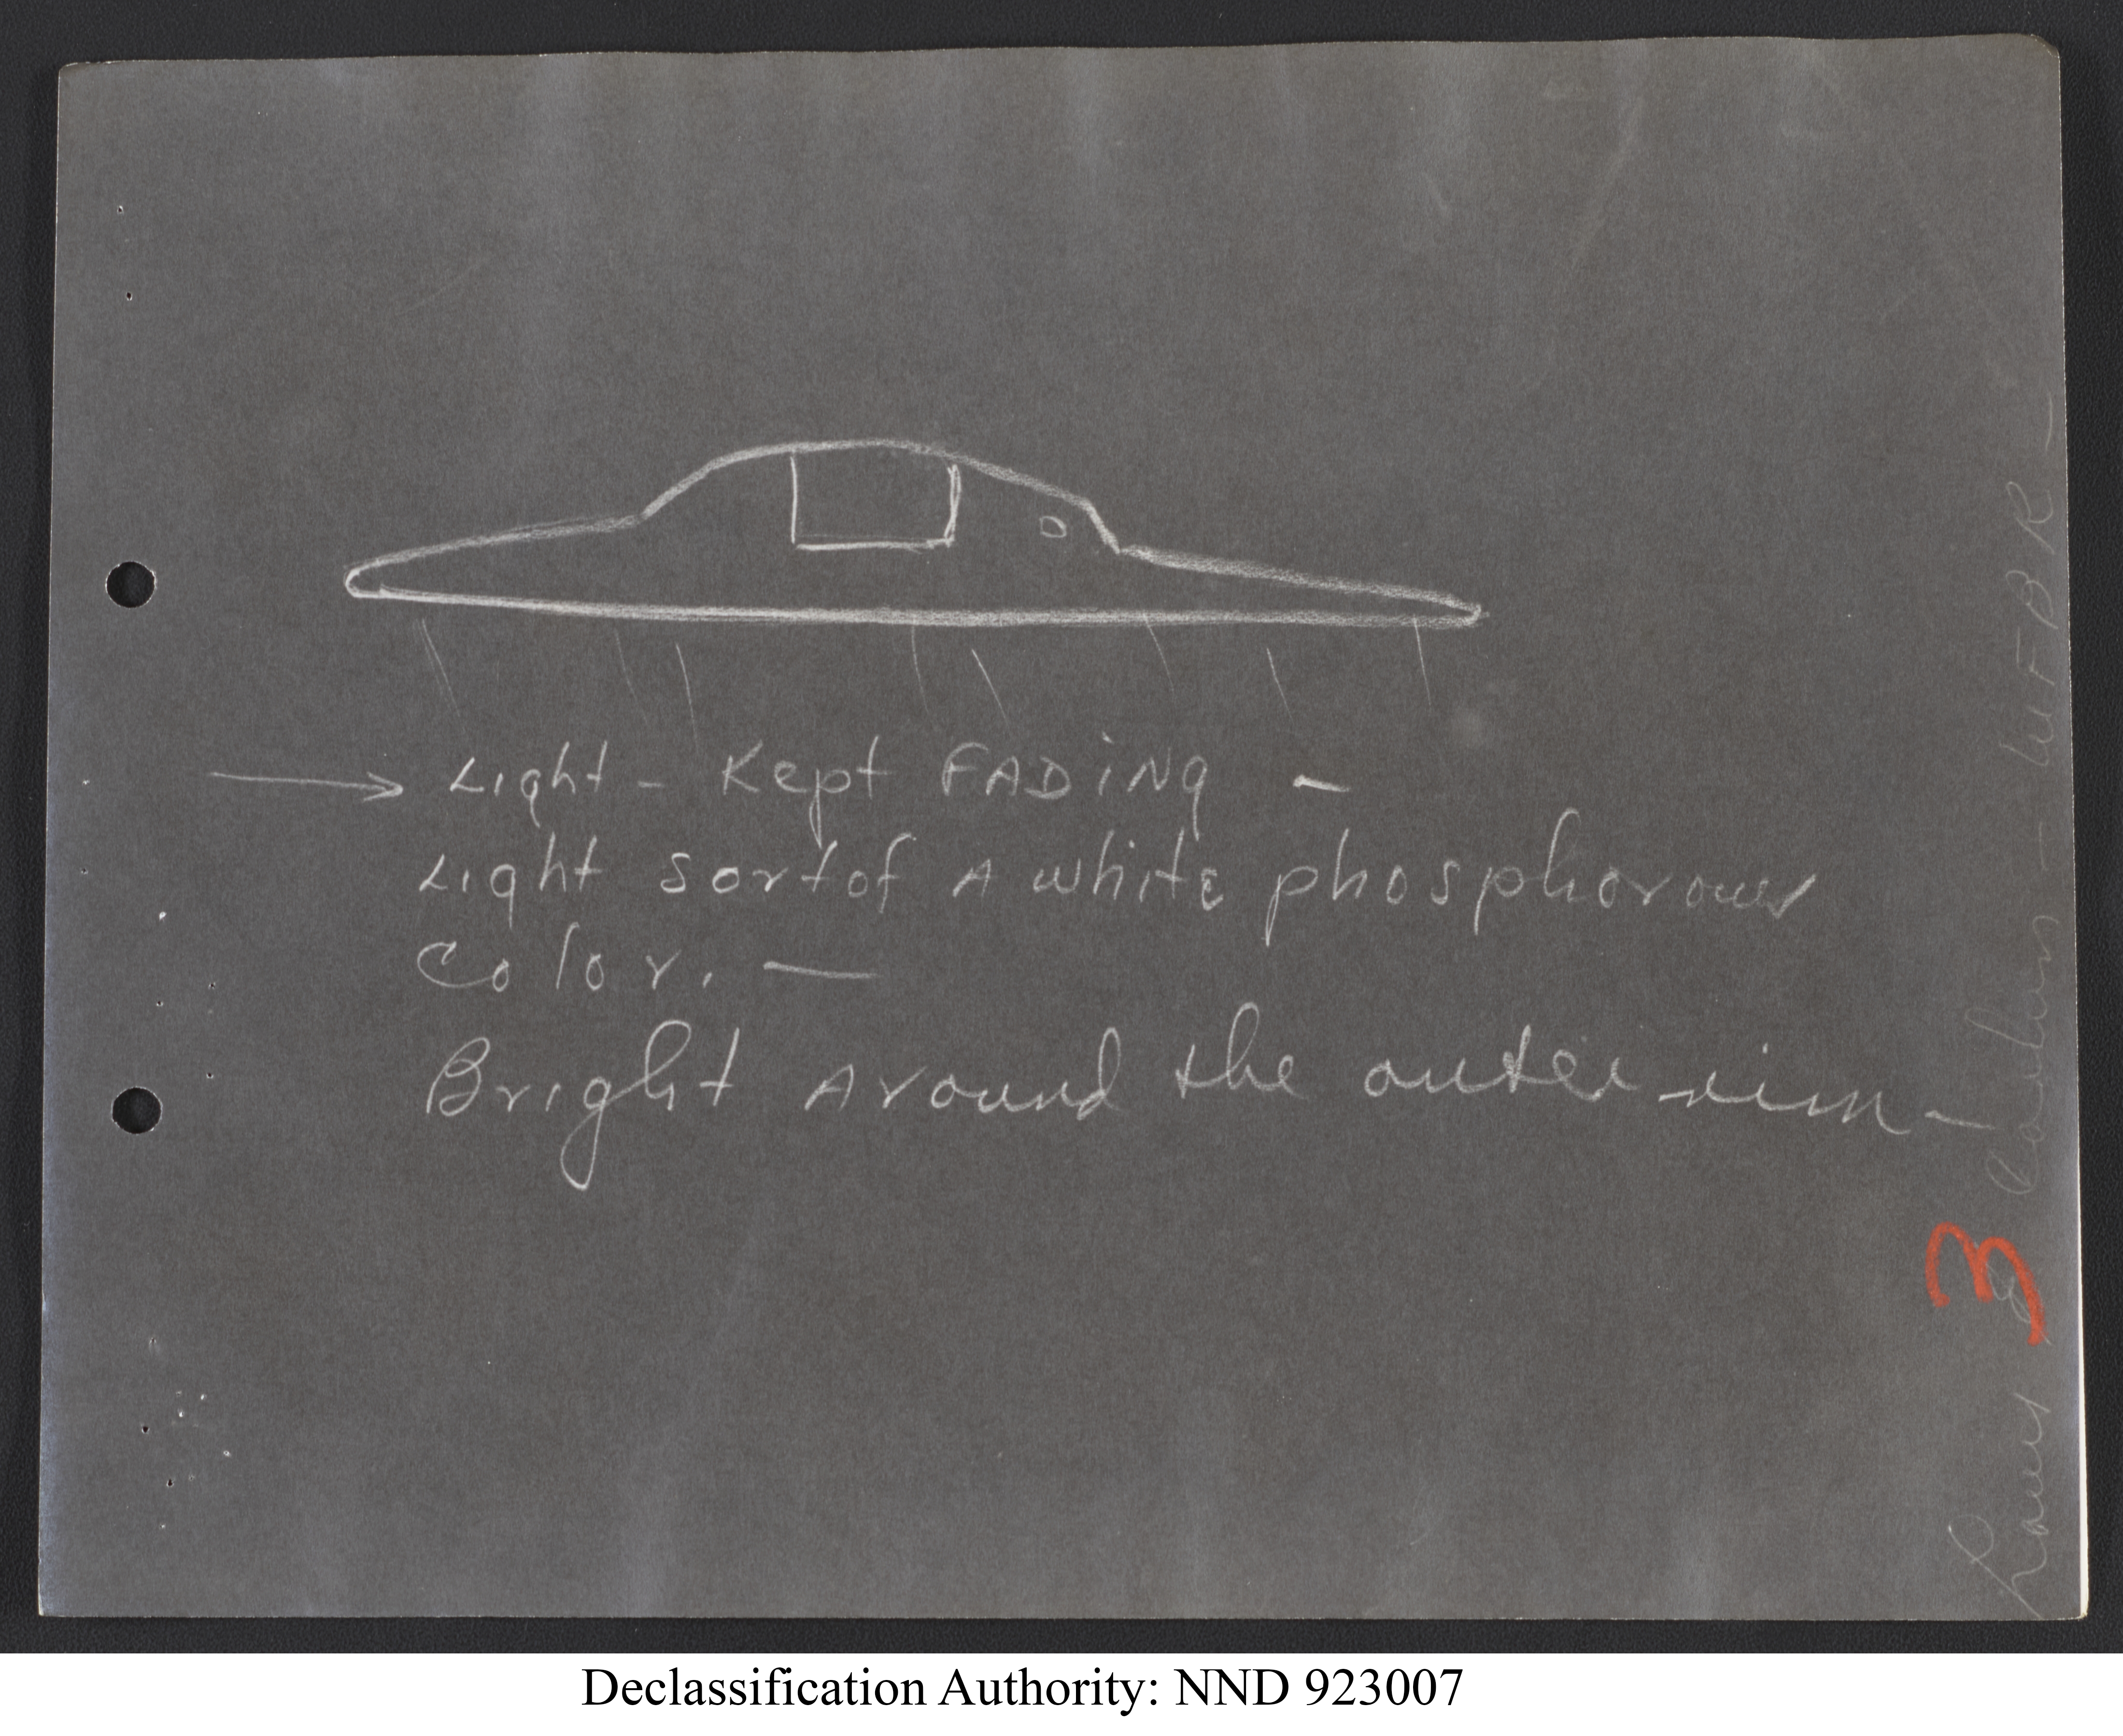 Light - Kept FADiNg -
Light sort of A white phosphorous
Color. —
Bright Around the outer rim -
3
WFBR -
Declassification Authority: NND 923007